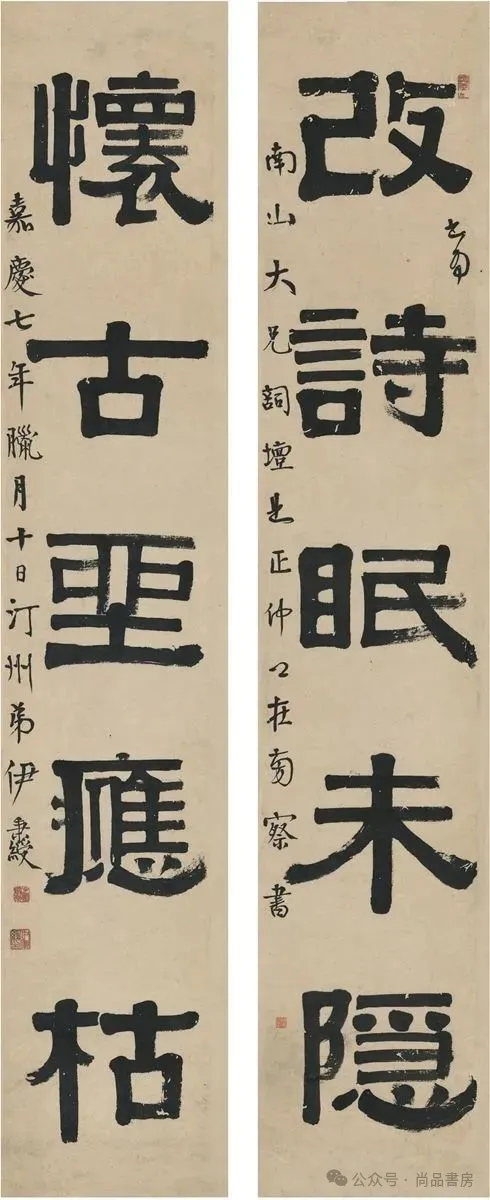 改詩眠未隱
南山大兄詞壇是正仲在南察書
懷古應枯
嘉慶七年臘月十日汀州弟伊秉綬
公众号·尚品書房